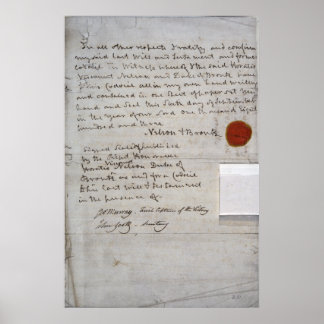 In all other respects I ratify and confirm
my said Last Will and Testament and former
Codicil In Witness whereof I the said Horatio
Viscount Nelson and Duke of Bronte have
this Codicil all in my own hand writing
and contained in one Sheet of paper set my
hand and Seal this Sixth day of September
in the year of our Lord one Thousand Eight
hundred and three
Nelson & Bronte
Signed Sealed and
by the Right Honourable
Horatio Viscount Nelson Duke of
Bronte as and for a Codicil
to his Last Will & Testament
in the presence of
Murray - First Captain of the Victory
John Scott - Secretary